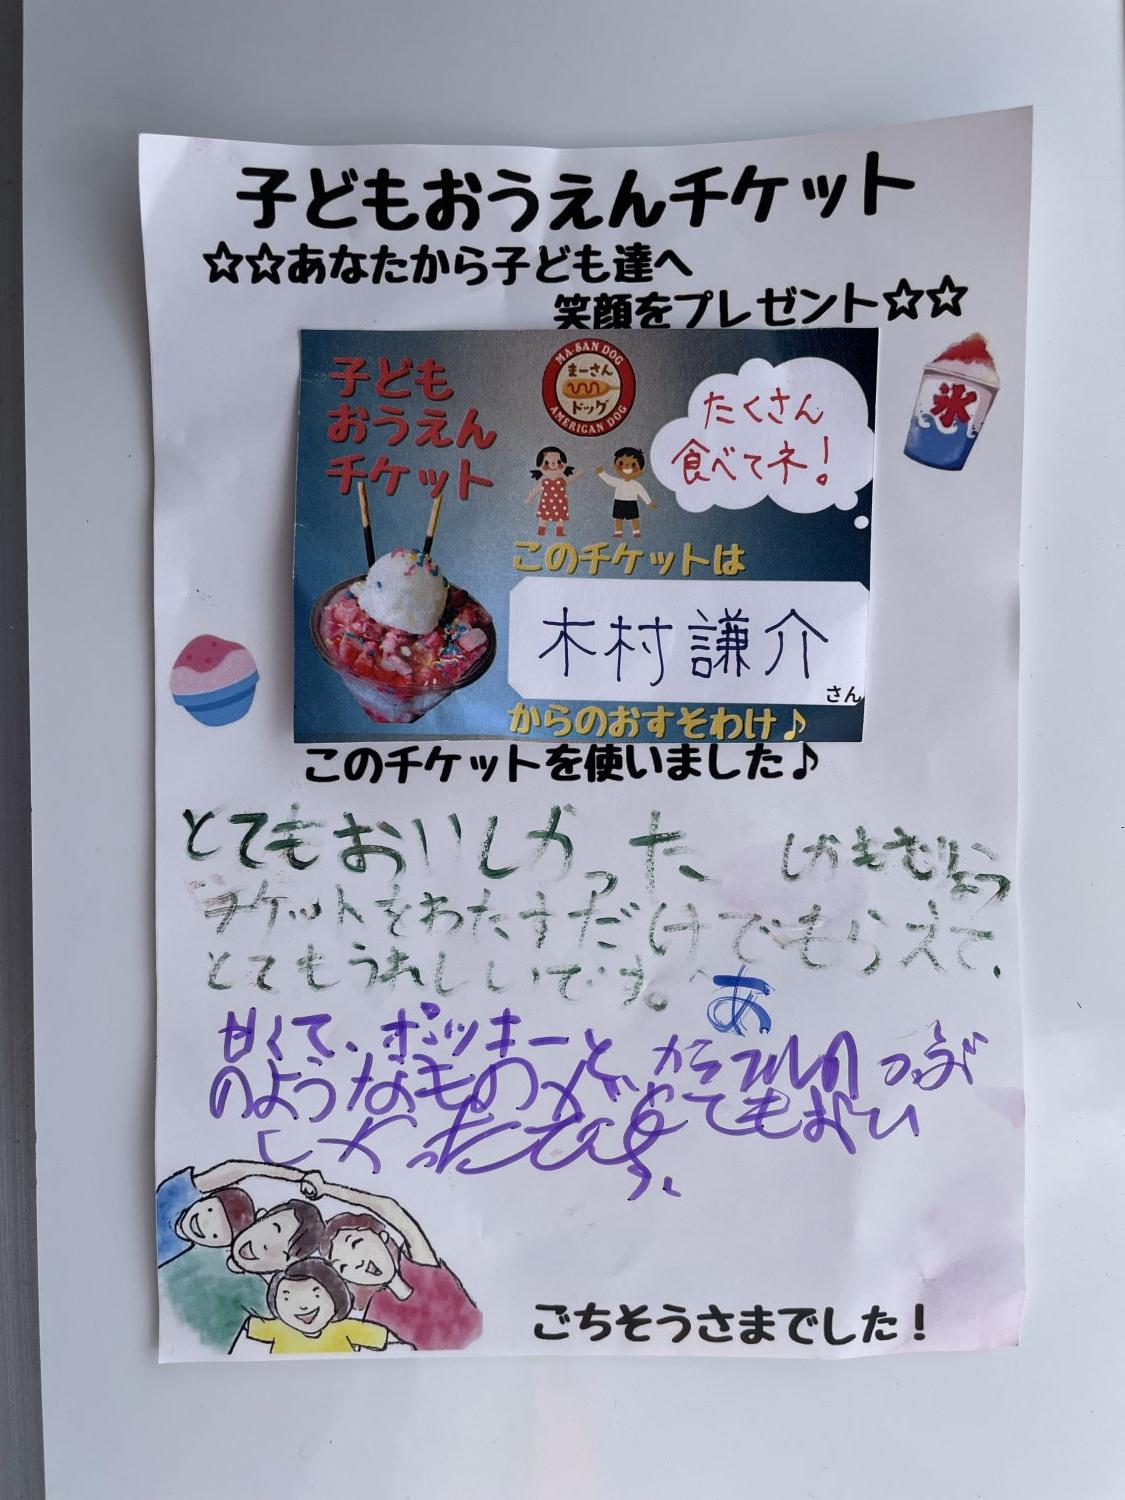 子どもおうえんチケット
☆☆あなたから子ども達へ
笑顔をプレゼント☆☆
子ども
おうえん
チケット
MA-SAN DOG
まーさん
ドッグ
AMERICAN DOG
たくさん
食べてネ!
氷
このチケットは
木村謙介
さん
からのおすそわけ♪
このチケットを使いました♪
とてもおいしかった しかもむりょう
チケットをわたすだけでもらえて、
とてもうれしいです。
あ
甘くて、ポッキーと、カラフルの つぶ
のようなものが、とてもおい
しかったです、
ごちそうさまでした!